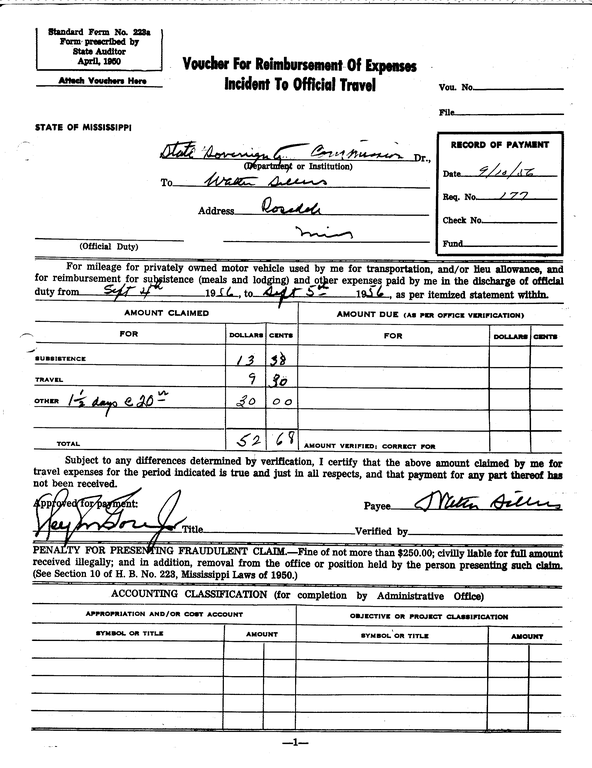 Standard Form No. 223a
Form prescribed by
State Auditor
April, 1950
Attach Vouchers Here
Voucher For Reimbursement Of Expenses
Incident To Official Travel
Vou. No.
File
STATE OF MISSISSIPPI
State Sovereignty Commission Dr.,
(Department or Institution)
To Walter Sillers
Address Rosedale
Miss
(Official Duty)
RECORD OF PAYMENT
Date 9/10/56
Req. No. 177
Check No.
Fund
For mileage for privately owned motor vehicle used by me for transportation, and/or lieu allowance, and
for reimbursement for subsistence (meals and lodging) and other expenses paid by me in the discharge of official
duty from Sept 4th 1956, to Sept 5th 1956, as per itemized statement within.
AMOUNT CLAIMED AMOUNT DUE (AS PER OFFICE VERIFICATION)
FOR DOLLARS CENTS FOR DOLLARS CENTS
SUBSISTENCE 13 38
TRAVEL 9 30
OTHER 1½ days @ 20 30 00
TOTAL 52 68 AMOUNT VERIFIED; CORRECT FOR
Subject to any differences determined by verification, I certify that the above amount claimed by me for
travel expenses for the period indicated is true and just in all respects, and that payment for any part thereof has
not been received.
Approved for payment:
Payee Walter Sillers
Title Verified by
PENALTY FOR PRESENTING FRAUDULENT CLAIM.—Fine of not more than $250.00; civilly liable for full amount
received illegally; and in addition, removal from the office or position held by the person presenting such claim.
(See Section 10 of H. B. No. 223, Mississippi Laws of 1950.)
ACCOUNTING CLASSIFICATION (for completion by Administrative Office)
APPROPRIATION AND/OR COST ACCOUNT OBJECTIVE OR PROJECT CLASSIFICATION
SYMBOL OR TITLE AMOUNT SYMBOL OR TITLE AMOUNT
—1—